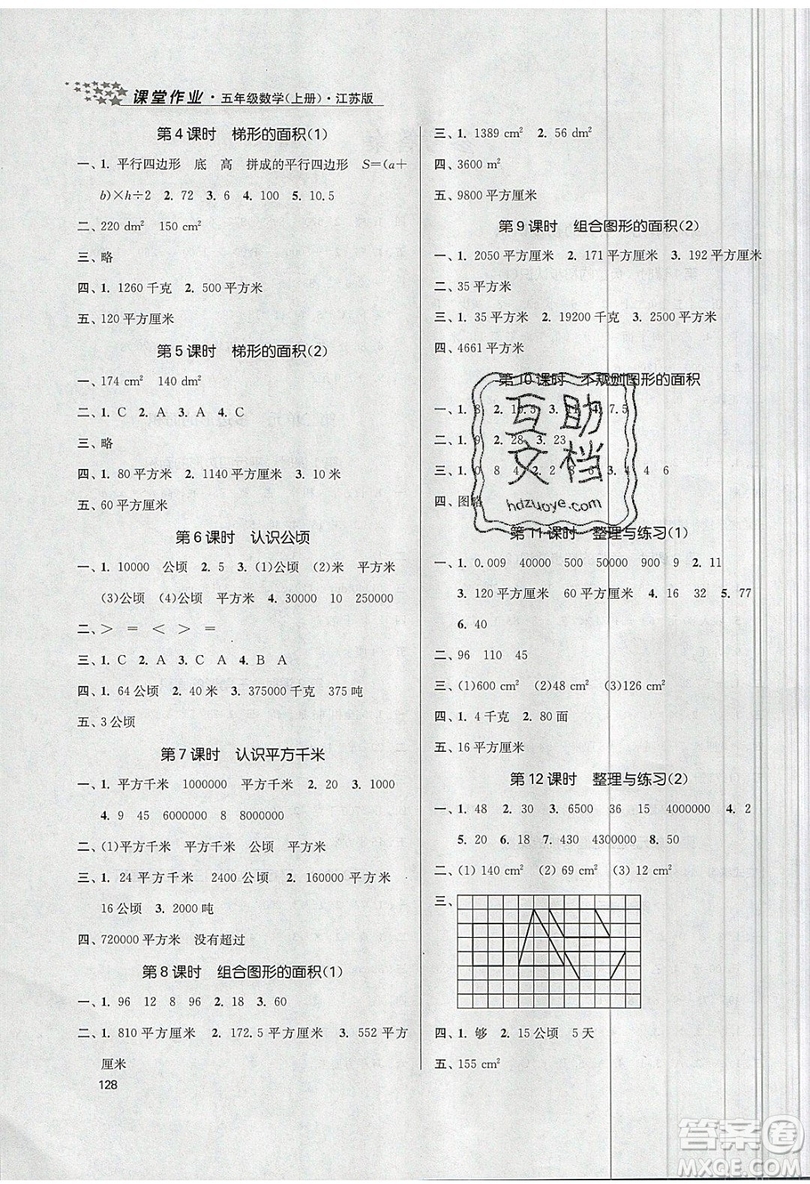 课堂作业·五年级数学(上册)·江苏版
第4课时 梯形的面积(1)
一、1. 平行四边形 底 高 拼成的平行四边形 S=(a+
b)×h÷2 2. 72 3. 6 4. 100 5. 10.5
二、220 dm² 150 cm²
三、略
四、1. 1260千克 2. 500平方米
五、120平方厘米
第5课时 梯形的面积(2)
一、174 cm² 140 dm²
二、1. C 2. A 3. A 4. C
三、略
四、1. 80平方米 2. 1140平方厘米 3. 180平方米
五、60平方厘米
第6课时 认识公顷
一、1. 10000 公顷 2. 5 3. (1)公顷 (2)米 平方米
(3)公顷 (4)公顷 平方米 4. 30000 10 250000
二、> = < > =
三、1. C 2. A 3. C 4. B A
四、1. 64公顷 2. 40米 3. 375000千克 375吨
五、3公顷
第7课时 认识平方千米
一、1. 平方千米 1000000 平方千米 2. 20 3. 1000
4. 9 45 6000000 8 8000000
二、(1)平方千米 (2)公顷 (3)平方米
三、1. 24平方千米 2400公顷 2. 160000平方米
16公顷 3. 2000吨
四、720000平方米 没有超过
第8课时 组合图形的面积(1)
一、1. 96 12 8 96 2. 18 3. 60
二、1. 810平方厘米 2. 172.5平方厘米 3. 552平方
厘米
128
三、1. 1389 cm² 2. 100 cm²
四、3600 m²
五、9800平方厘米
第9课时 组合图形的面积(2)
一、1. 2050平方厘米 2. 171平方厘米 3. 192平方厘米
二、35平方米
三、1. 35平方米 2. 19200千克 3. 2500平方米
四、4661平方米
第10课时 不规则图形的面积
一、1. 8 2. 10.5 3. 11 4. 7.5
二、1. 9 2. 28 3. 23
三、1. 0 8 4 2. 2 8 6 3. 4 4 6
四、图略
第11课时 整理与练习(1)
一、1. 0.009 40000 50000 900 9 2. 11
3. 120平方厘米 60平方厘米 4. 16 32 5. 77
6. 40
二、96 110 45
三、(1)600 cm² (2)48 cm² (3)126 cm²
四、1. 4千克 2. 80面
五、16平方厘米
第12课时 整理与练习(2)
一、1. 48 2. 20 3. 6500 36 15 4000000 4. 2
5. 20 6. 18 7. 430 4300000 8. 50
二、(1) 140 cm² (2) 69 cm² (3) 12 cm²
三、
四、1. 够 2. 15公顷 5天
五、155 cm²
互助
文档
hdzuoye.com
答案圈
MXQE.COM